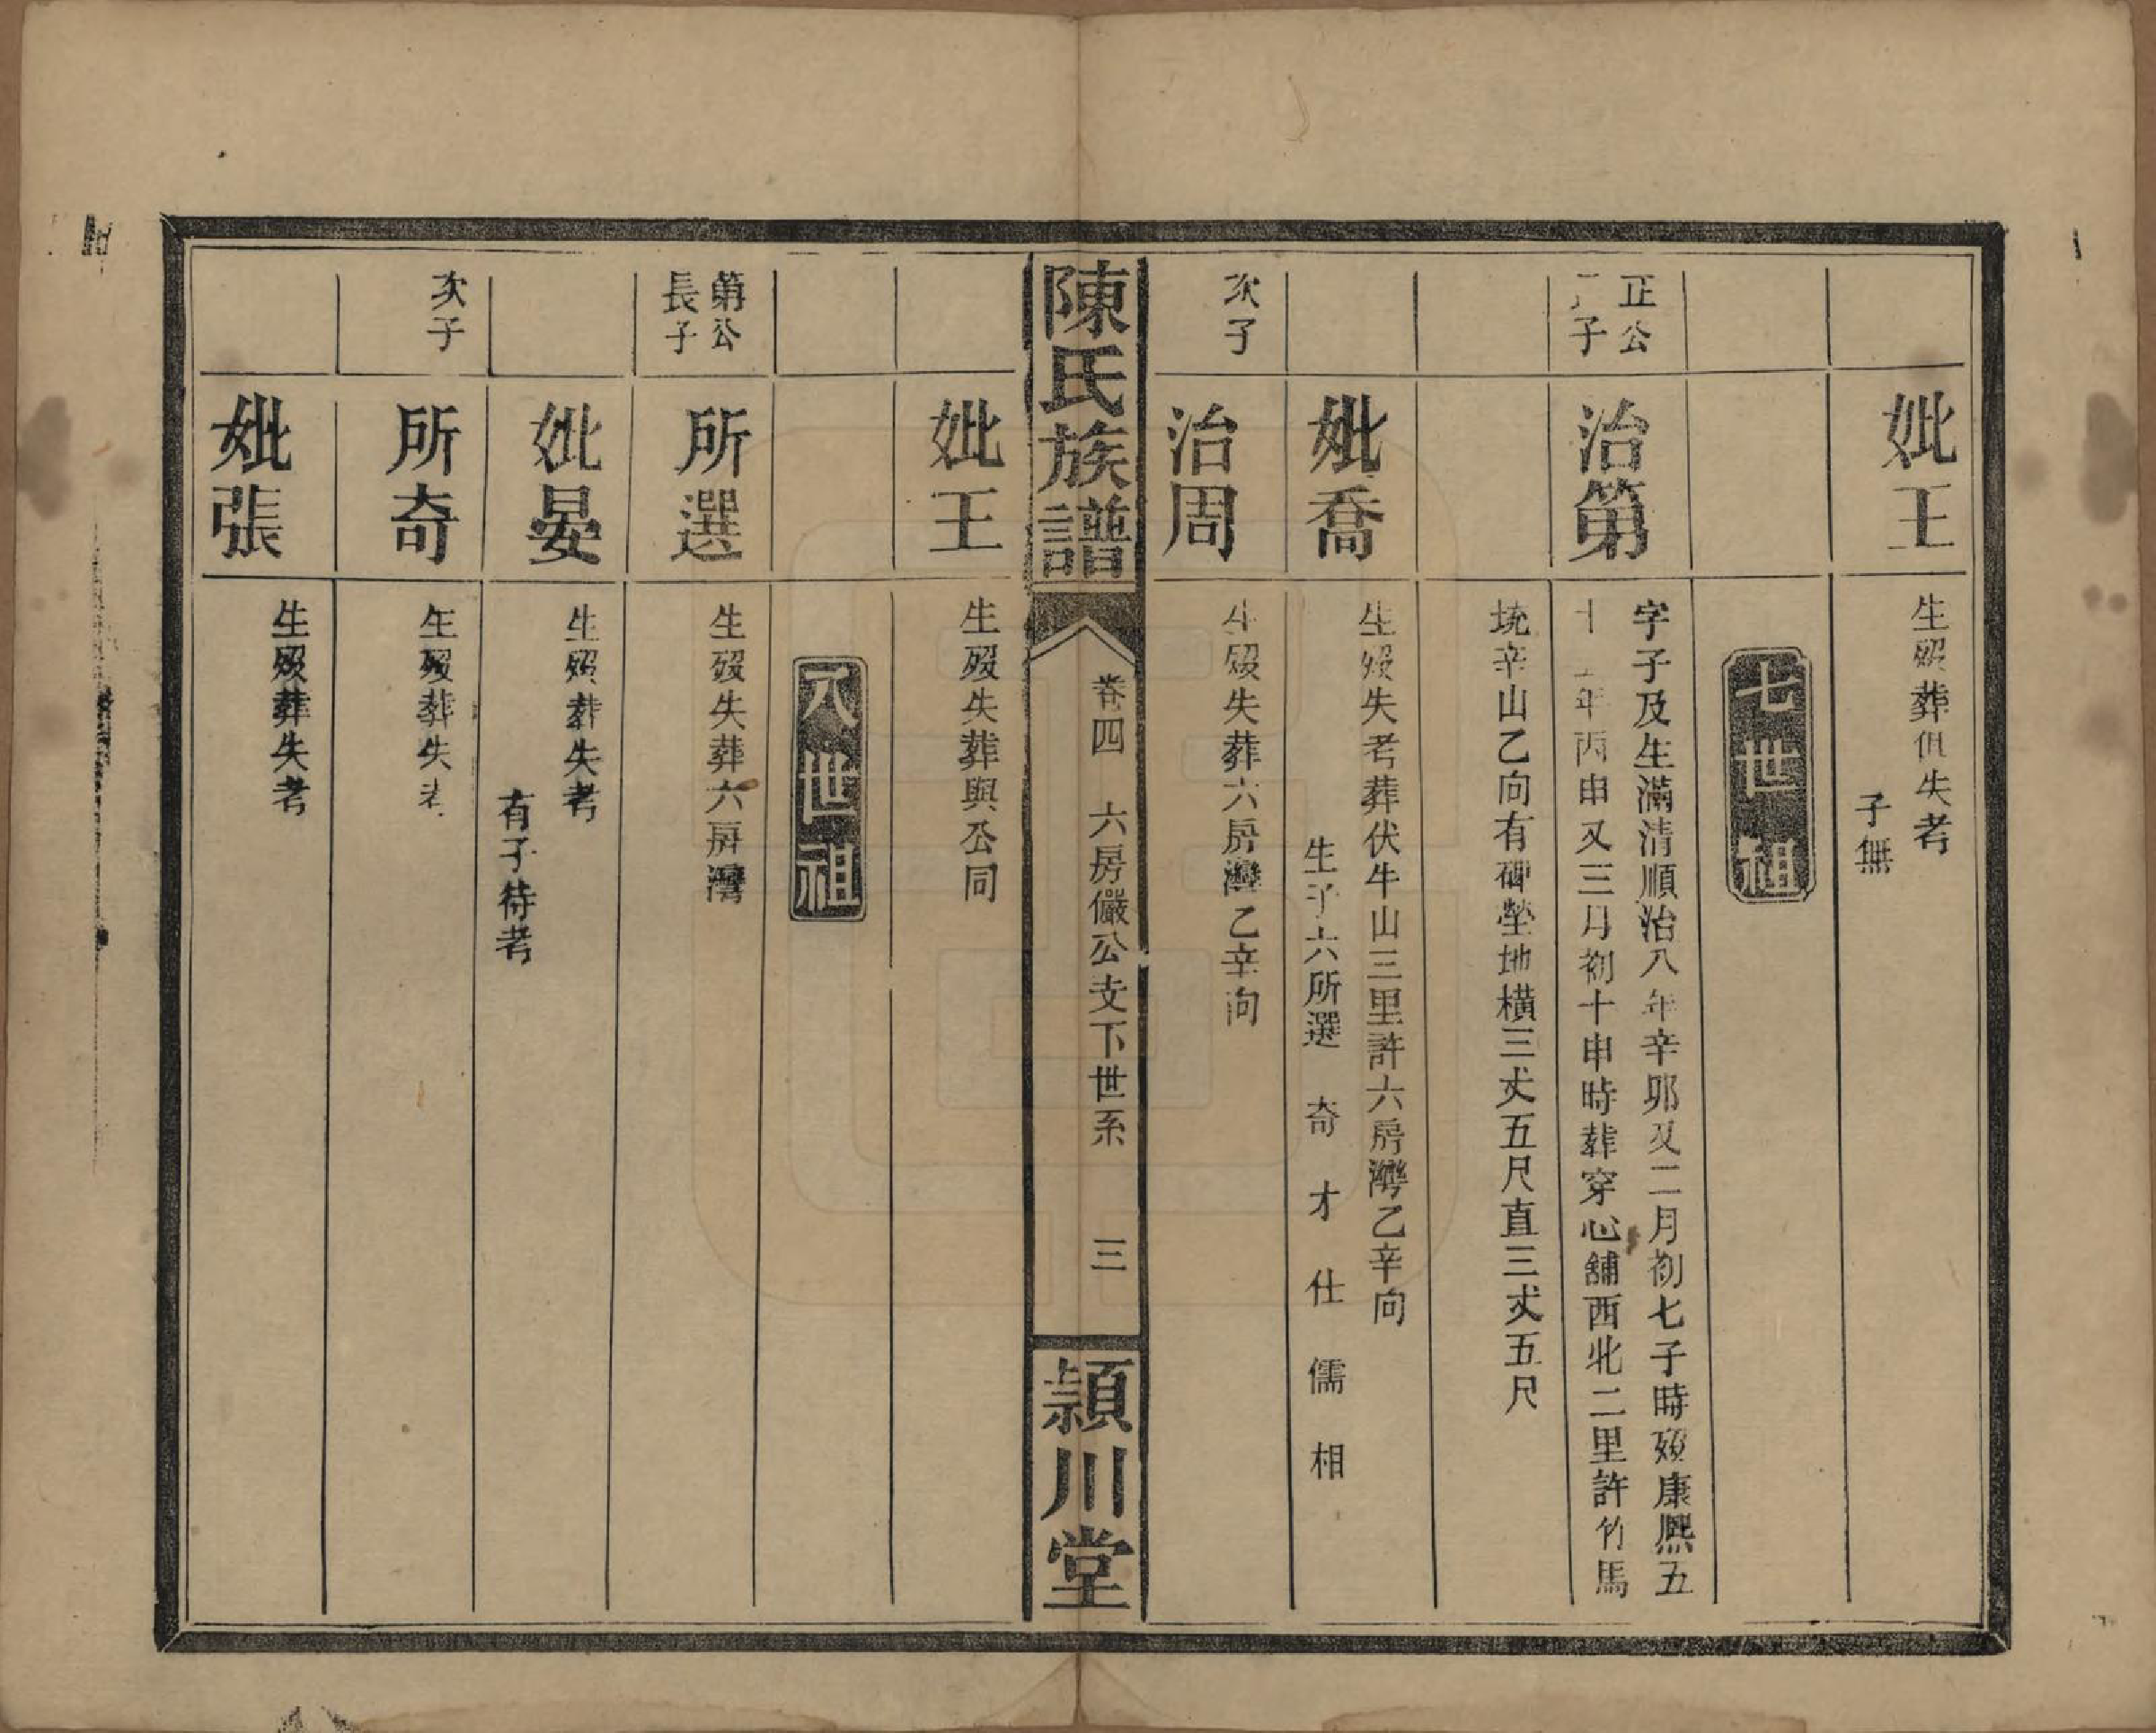 妣王
生歿葬俱失考
子無
七世祖
正公
子
治第
字子及生滿清順治八年辛卯又二月初七子時歿康熙五
十年丙申又三月初十申時葬穿心舖西北二里許竹馬
塆辛山乙向有碑塋地橫三丈五尺直三丈五尺
妣喬
生歿失考葬伏牛山三里許六房灣乙辛向
生子六所選 奇 才 仕 儒 相
次子
治周
生歿失葬六房灣乙辛向
陳氏族譜
卷四 六房儼公支下世系 三
頴川堂
妣王
生歿失葬與公同
八世祖
第公
長子
所選
生歿失葬六房灣
妣晏
生歿葬失考
有子待考
次子
所奇
生歿葬失考
妣張
生歿葬失考